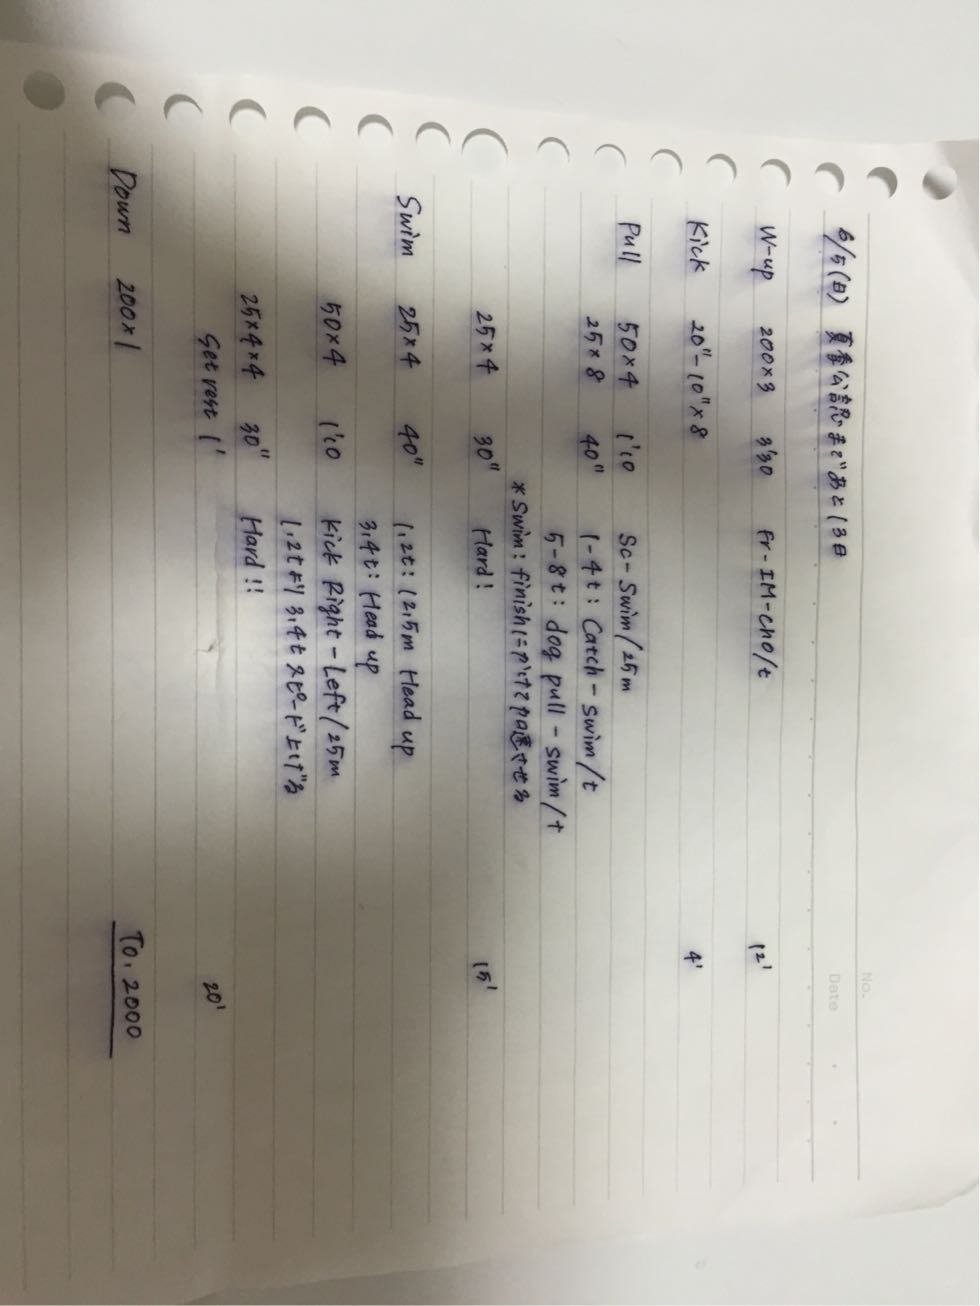 No.
Date
6/5(日) 夏季公認まであと13日
W-up 200×3 3'30 Fr-IM-cho/t 12'
Kick 20"-10"×8 4'
Pull 50×4 1'10 Sc-Swim/25m
25×8 40" 1-4t: Catch-swim/t
5-8t: dog pull-swim/t
*Swim: finishにかけて加速させる
25×4 30" Hard! 15'
Swim 25×4 40" 1,2t: 12.5m Head up
3,4t: Head up
50×4 1'10 Kick Right-Left/25m
1,2tより3,4tスピード上げる
25×4×4 30" Hard!!
Set rest 1' 20'
Down 200×1 To. 2000